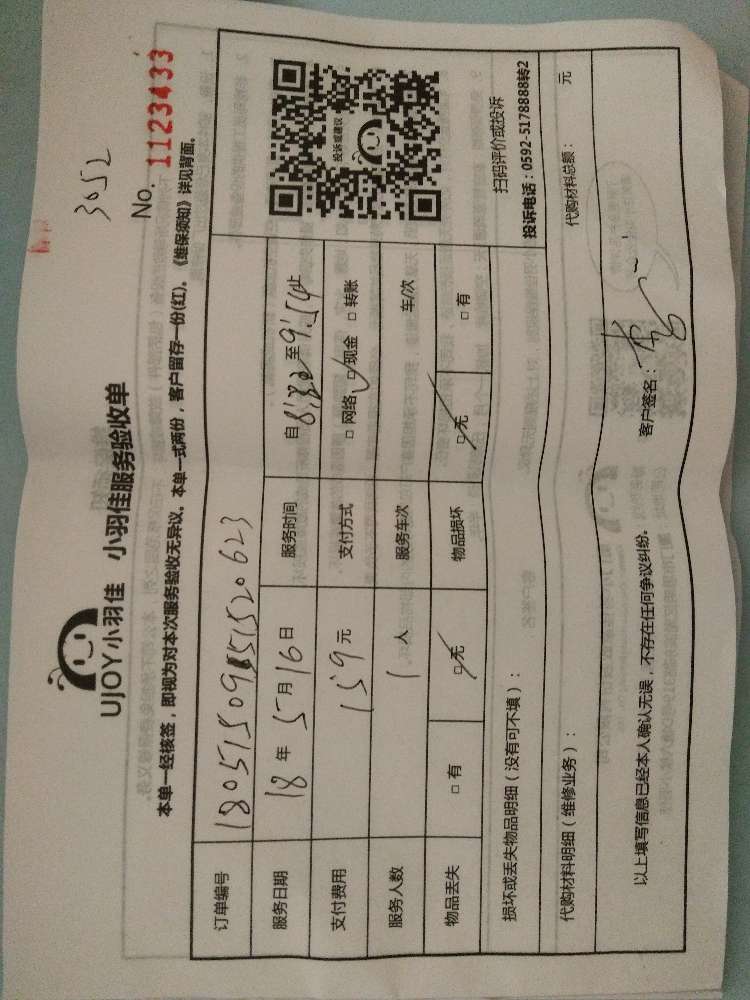 3052
UJOY小羽佳 小羽佳服务验收单
No. 1123433
本单一经核签，即视为对本次服务验收无异议。本单一式两份，客户留存一份(红)。《维保须知》详见背面。
订单编号
服务日期 18 年 5 月 16 日 服务时间 自 8:32 至 9:54 止
支付费用 159 元 支付方式 □ 网络 □ 现金 □ 转账
服务人数 1 人 服务车次 车/次
物品丢失 □ 有 □ 无 物品损坏 □ 无 □ 有
投诉或建议
扫码评价或投诉
投诉电话：0592-5178888转2
损坏或丢失物品明细（没有可不填）：
代购材料明细（维修业务）： 代购材料总额： 元
以上填写信息已经本人确认无误，不存在任何争议纠纷。 客户签名：